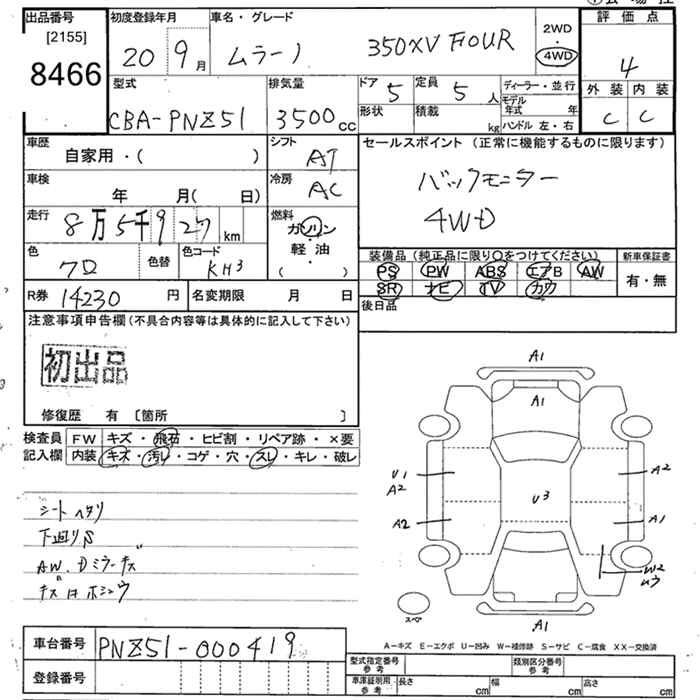 出品番号
[2155]
8466
初度登録年月
20 9月
車名・グレード
ムラーノ 350XV FOUR
2WD
・
4WD
評価点
4
外装 内装
C C
型式
CBA-PNZ51
排気量
3500cc
ドア 5
定員 5人
形状
積載 kg
ディーラー・並行
モデル年式 年
ハンドル 左・右
車歴
自家用・( )
シフト AT
車検
年 月( 日)
冷房 AC
走行
8万5千927km
燃料
ガソリン
・
軽・油
( )
色
クロ
色替
色コード
KH3
R券 14230円
名変期限 月 日
セールスポイント(正常に機能するものに限ります)
バックモニター
4WD
装備品(純正品に限り○をつけてください)
PS PW ABS エアB AW
SR ナビ TV カワ
新車保証書
有・無
後日品
注意事項申告欄(不具合内容等は具体的に記入して下さい)
初出品
修復歴 有 〔箇所 〕
検査員記入欄
FW キズ・飛石・ヒビ割・リペア跡・×要
内装 キズ・汚レ・コゲ・穴・スレ・キレ・破レ
シートヘタリ
下廻りS
AW.Dミラーキズ
キズはホシュウ
A1
A1
U1
A2
A2
U3
A2
A1
W2
ムラ
スペア
A1
A-キズ E-エクボ U-凹み W-補修跡 S-サビ C-腐食 XX-交換済
車台番号 PNZ51-000419
登録番号
型式指定番号
参考
類別区分番号
参考
車庫証明用
参考
長さ cm
幅 cm
高さ cm